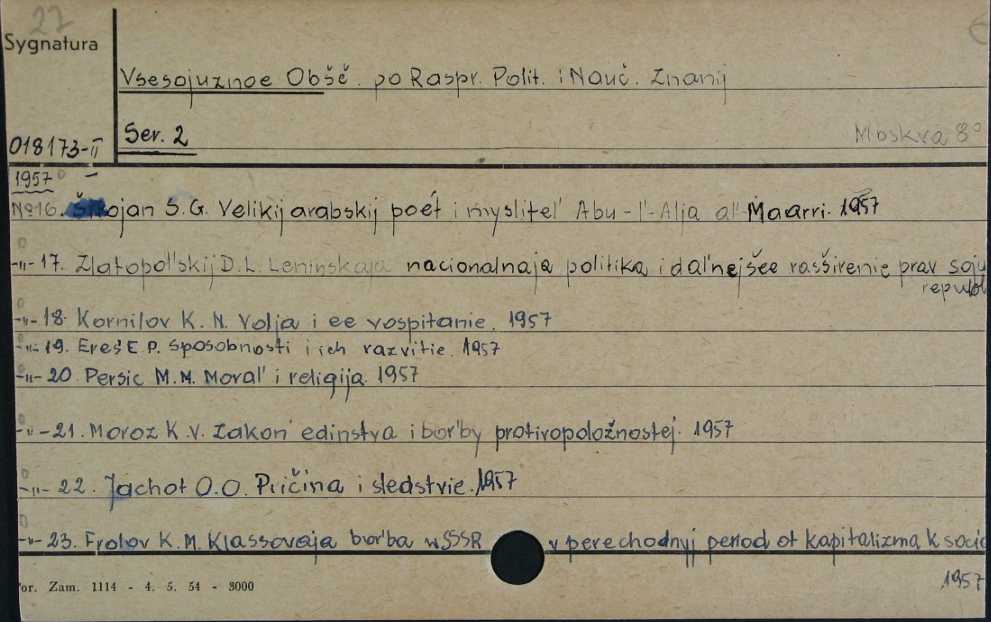 27
Sygnatura
Vsesojuznoe Obšč. po Raspr. Polit. i Nauč. Znanij
018173-II
Ser. 2
Moskva 8°
1957
№16. ojan S.G. Velikij arabskij poèt i myslitel' Abu-l'-Alja al'-Maarri. 1957
-"- 17. Zlatopol'skij D.L. Leninskaja nacionalnaja politika i dal'nejšee rasširenie prav soju
republ
-"- 18. Kornilov K.N. Volja i ee vospitanie. 1957
-"- 19. Ereš E.P. Sposobnosti i ich razvitie. 1957
-"- 20. Persic M.M. Moral' i religija. 1957
-"- 21. Moroz K.V. Zakon edinstva i bor'by protivopoložnostej. 1957
-"- 22. Jachot O.O. Pričina i sledstvie. 1957
-"- 23. Frolov K.M. Klassovaja bor'ba w SSSR v perechodnyj period ot kapitalizma k socia
1957
or. Zam. 1114 - 4. 5. 54 - 3000